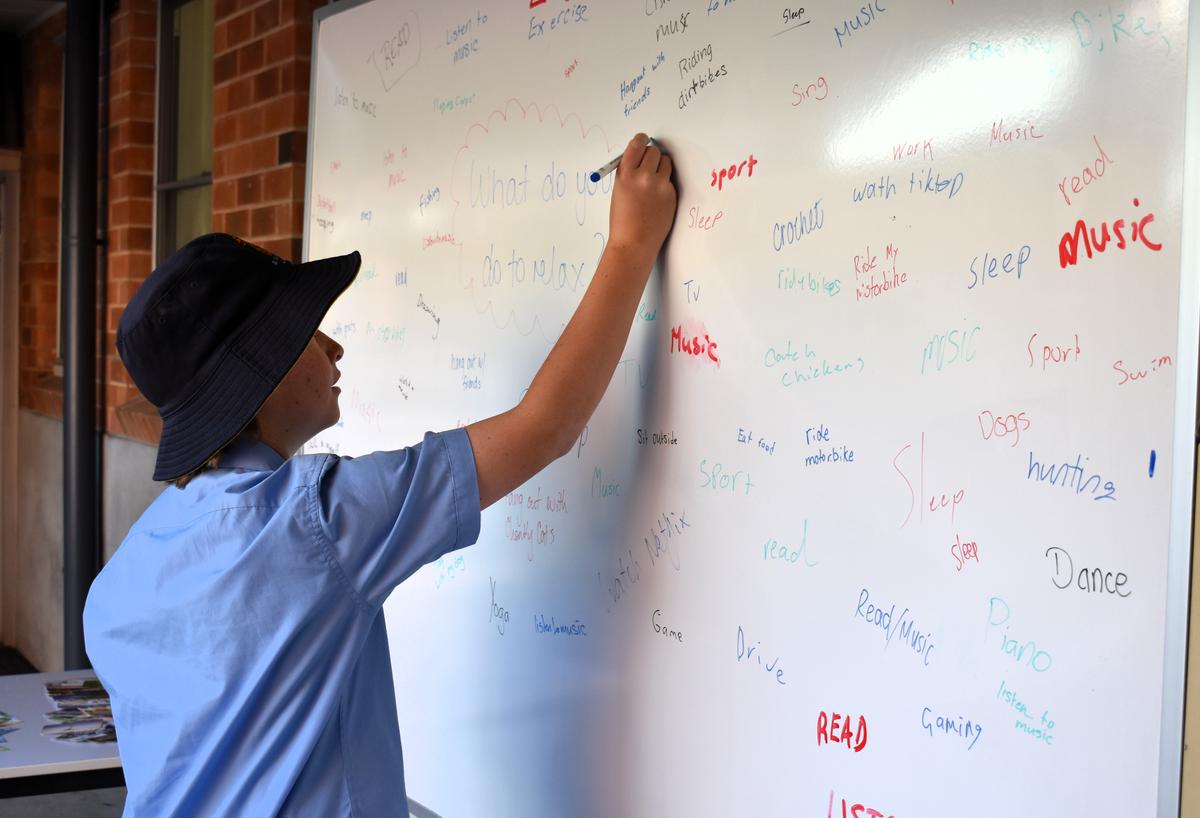 READ
Listen to
music
Exercise
music
Sleep
Music
Listen to music
sport
Hangout with
friends
Riding
dirtbikes
Sing
Work
Music
What do you
do to relax?
fishing
sport
Sleep
wath tiktop
read
crochet
Music
Sleep
ridybikes
Ride My
Motorbike
Tv
Read
read
Drawing
Music
hang out w/
friends
TV
catch
chickens
music
Sport
Swim
Dogs
Music
Sit outside
Eat food
ride
motorbike
hunting
Sport
Sleep
Music
hang out with
read
sleep
Dance
watch Netflix
Yoga
listen to music
Game
Drive
Read/Music
Piano
listen to
music
READ
Gaming